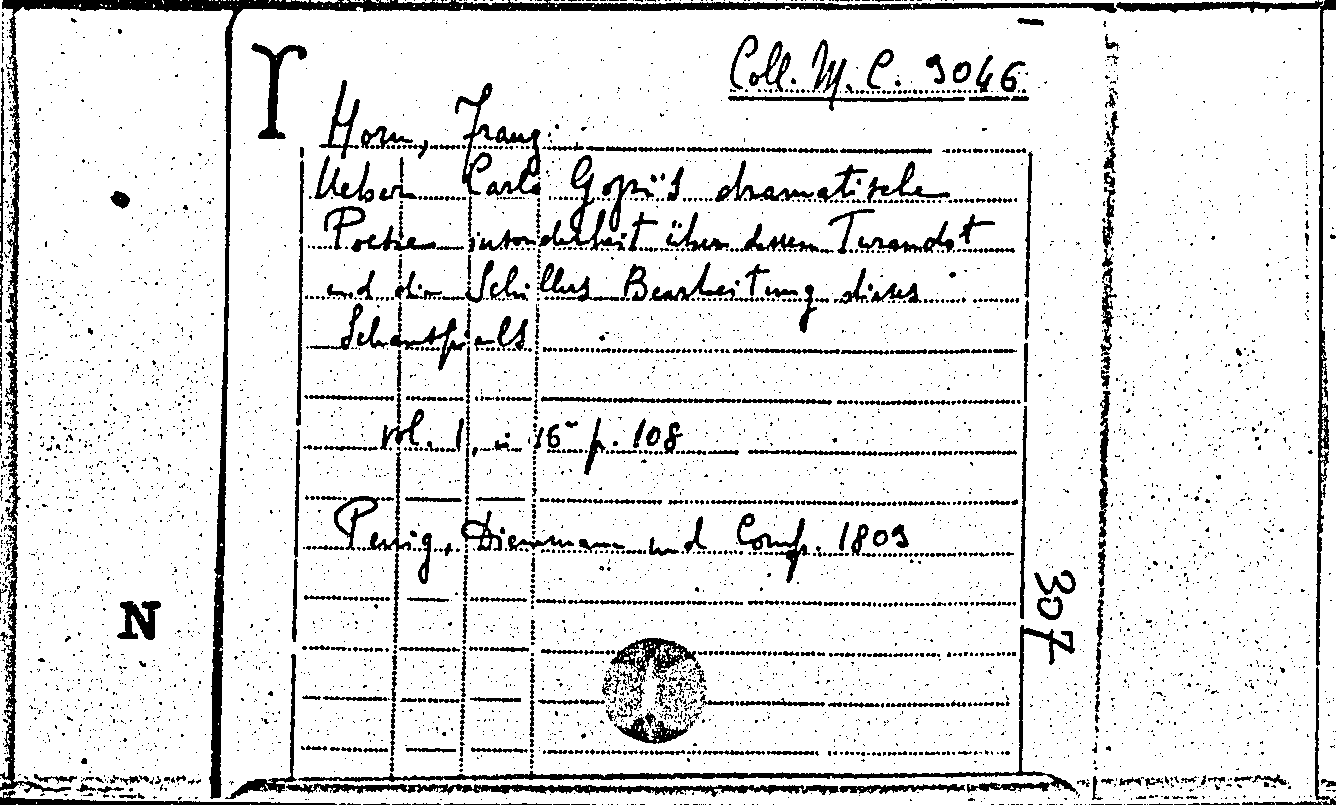 Coll. M. C. 3046
Horn, Franz
Ueber Carlo Gozzi's dramatische
Poesie insonderheit über dessen Turandot
und die Schillers Bearbeitung dieses
Schauspiels
vol. 1, in 16° p. 108
Penig, Dienemann und Comp. 1803
307
N